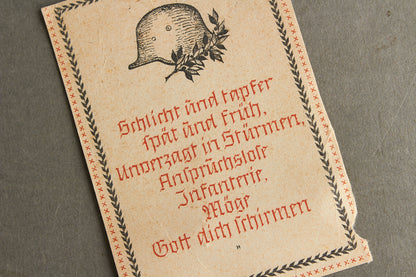 Schlicht und tapfer
spät und früh,
Unverzagt in Stürmen,
Anspruchslose
Infanterie,
Möge
Gott dich schirmen
"